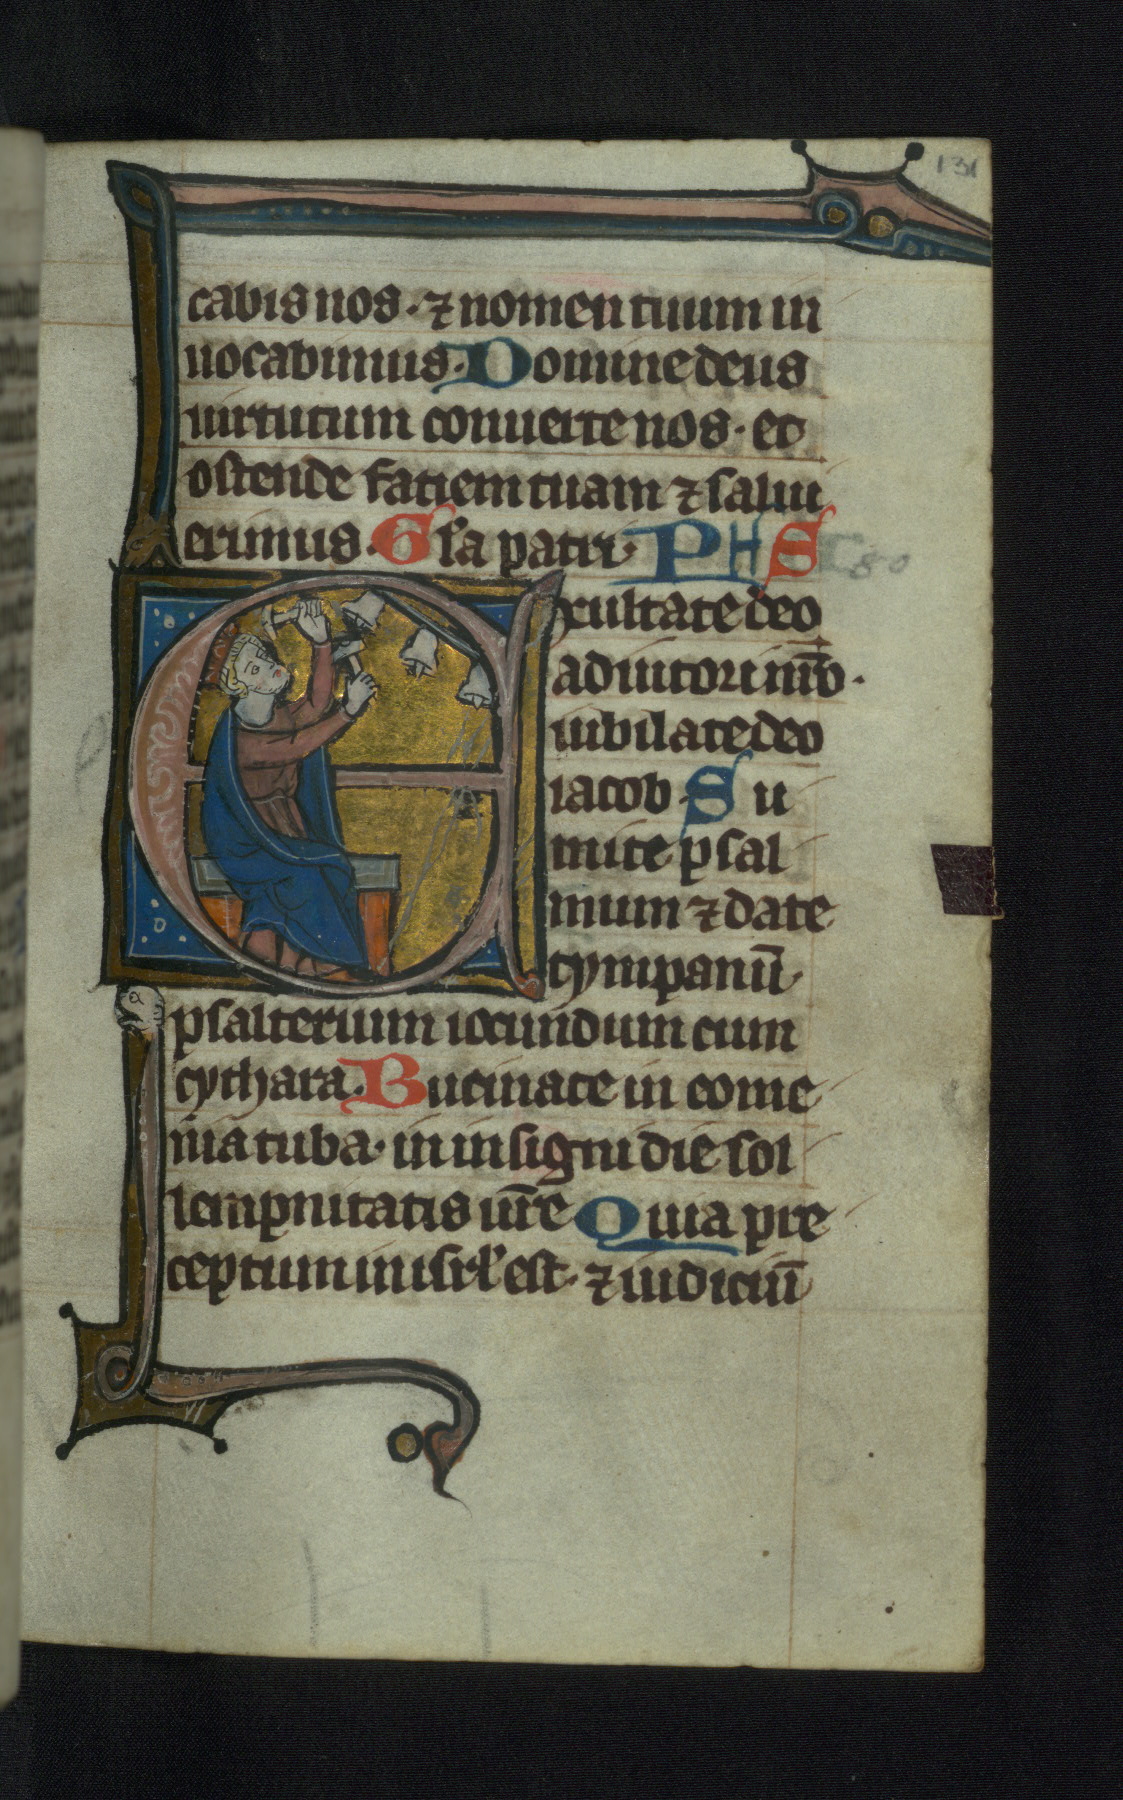 131
cabis nos · ⁊ nomen tuum in
uocabimus · Domine deus
uirtutum conuerte nos · et
ostende fatiem tuam ⁊ salui
erimus · Gl̄a patri · PHS 80
Exultate deo
adiutori nr̄o ·
iubilate deo
iacob · Su
mite psal
mum ⁊ date
tympanū ·
psalterium iocundum cum
cythara · Bucinate in eome
nia tuba · in insigni die sol
lempnitatis ur̄e Quia pre
ceptum in isrl̄ est · ⁊ iudiciū